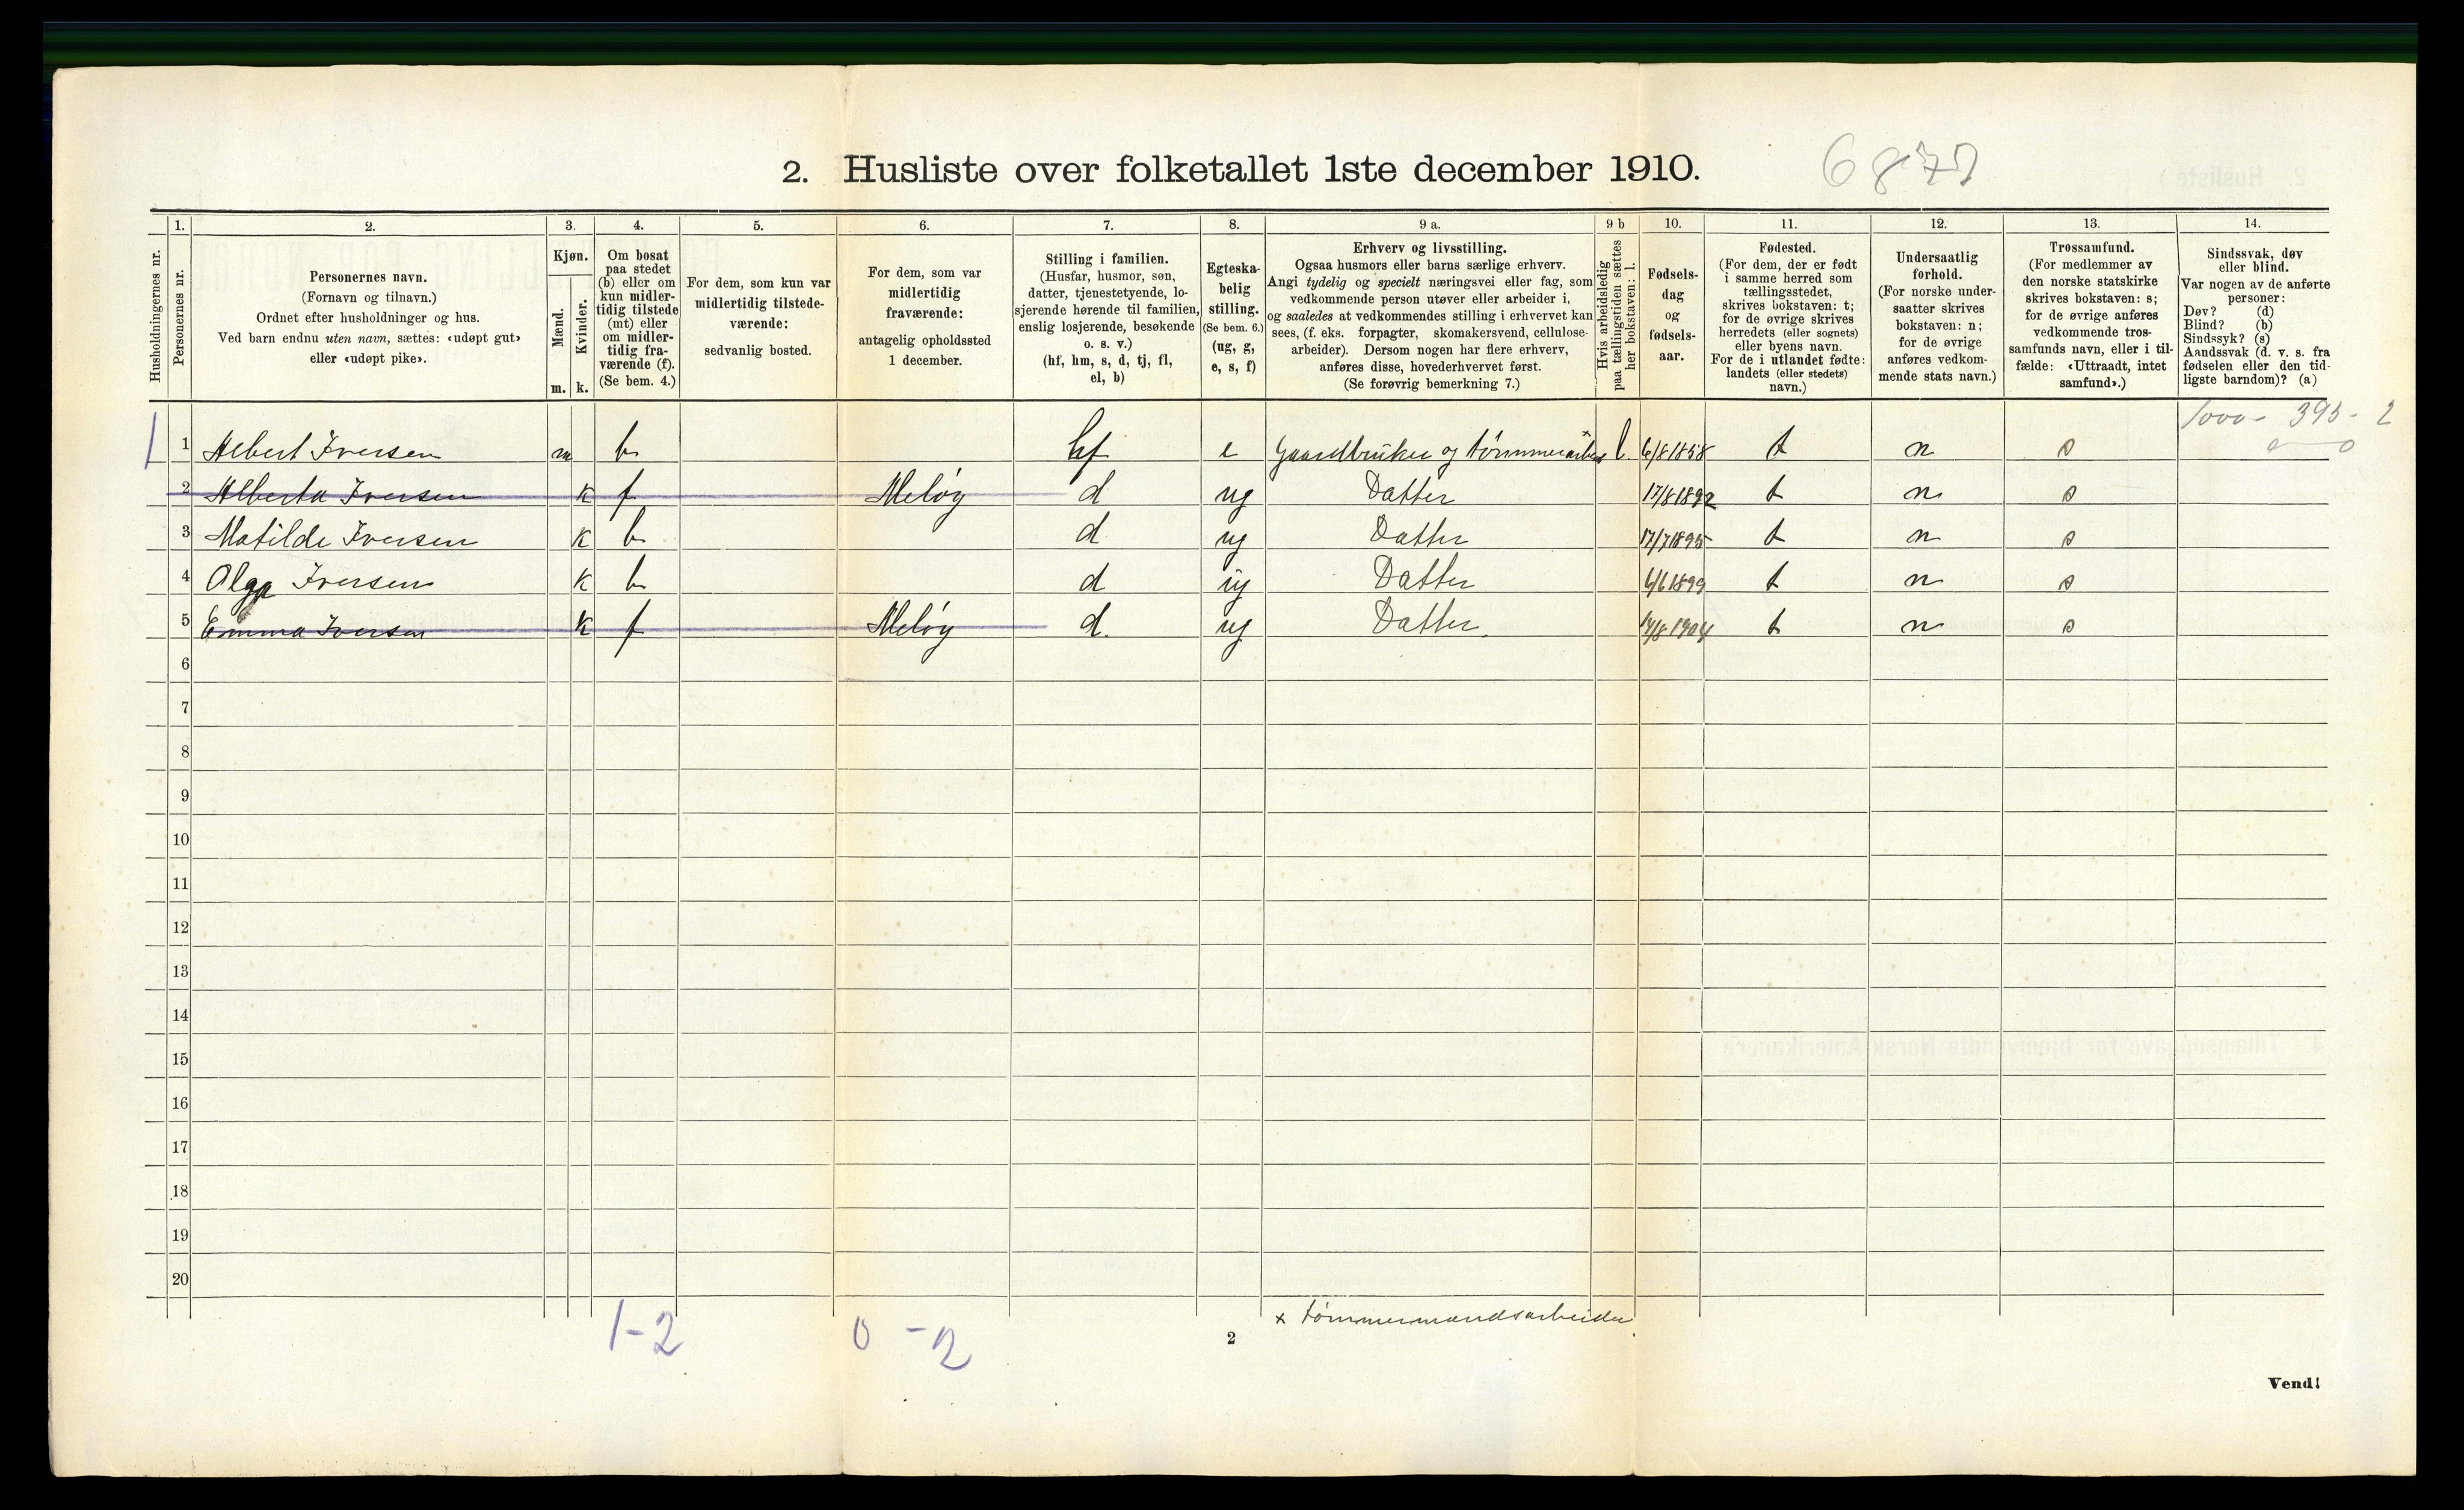 2. Husliste over folketallet 1ste december 1910.
1. 2. 3. 4. 5. 6. 7. 8. 9 a. 9 b 10. 11. 12. 13. 14.
Husholdningernes nr.
Personernes nr.
Personernes navn.
(Fornavn og tilnavn.)
Ordnet efter husholdninger og hus.
Ved barn endnu uten navn, sættes: «udøpt gut»
eller «udøpt pike».
Kjøn.
Mænd.
Kvinder.
m. k.
Om bosat
paa stedet
(b) eller om
kun midler-
tidig tilstede
(mt) eller
om midler-
tidig fra-
værende (f).
(Se bem. 4.)
For dem, som kun var
midlertidig tilstede-
værende:
sedvanlig bosted.
For dem, som var
midlertidig
fraværende:
antagelig opholdssted
1 december.
Stilling i familien.
(Husfar, husmor, søn,
datter, tjenestetyende, lo-
sjerende hørende til familien,
enslig losjerende, besøkende
o. s. v.)
(hf, hm, s, d, tj, fl,
el, b)
Egteska-
belig
stilling.
(Se bem. 6.)
(ug, g,
e, s, f)
Erhverv og livsstilling.
Ogsaa husmors eller barns særlige erhverv.
Angi tydelig og specielt næringsvei eller fag, som
vedkommende person utøver eller arbeider i,
og saaledes at vedkommendes stilling i erhvervet kan
sees, (f. eks. forpagter, skomakersvend, cellulose-
arbeider). Dersom nogen har flere erhverv,
anføres disse, hovederhvervet først.
(Se forøvrig bemerkning 7.)
Hvis arbeidsledig
paa tællingstiden sættes
her bokstaven: l.
Fødsels-
dag
og
fødsels-
aar.
Fødested.
(For dem, der er født
i samme herred som
tællingsstedet,
skrives bokstaven: t;
for de øvrige skrives
herredets (eller sognets)
eller byens navn.
For de i utlandet fødte:
landets (eller stedets)
navn.)
Undersaatlig
forhold.
(For norske under-
saatter skrives
bokstaven: n;
for de øvrige
anføres vedkom-
mende stats navn.)
Trossamfund.
(For medlemmer av
den norske statskirke
skrives bokstaven: s;
for de øvrige anføres
vedkommende tros-
samfunds navn, eller i til-
fælde: «Uttraadt, intet
samfund».)
Sindssvak, døv
eller blind.
Var nogen av de anførte
personer:
Døv? (d)
Blind? (b)
Sindssyk? (s)
Aandssvak (d. v. s. fra
fødselen eller den tid-
ligste barndom)? (a)
1000 - 395 - 2
1 1 Albert Iversen m b hf e Gaardbruker og tømmerarbei× l. 6/8 1858 t n s
2 Alberta Iversen k f Meløy d ug Datter 17/8 1892 t n s
3 Matilde Iversen k b d ug Datter 17/7 1895 t n s
4 Olga Iversen k b d ug Datter 6/6 1899 t n s
5 Emma Iversen k f Meløy d. ug Datter. 14/8 1904 t n s
6
7
8
9
10
11
12
13
14
15
16
17
18
19
20
× tømmermandsarbeider
1-2 0 - 2
2
Vend!